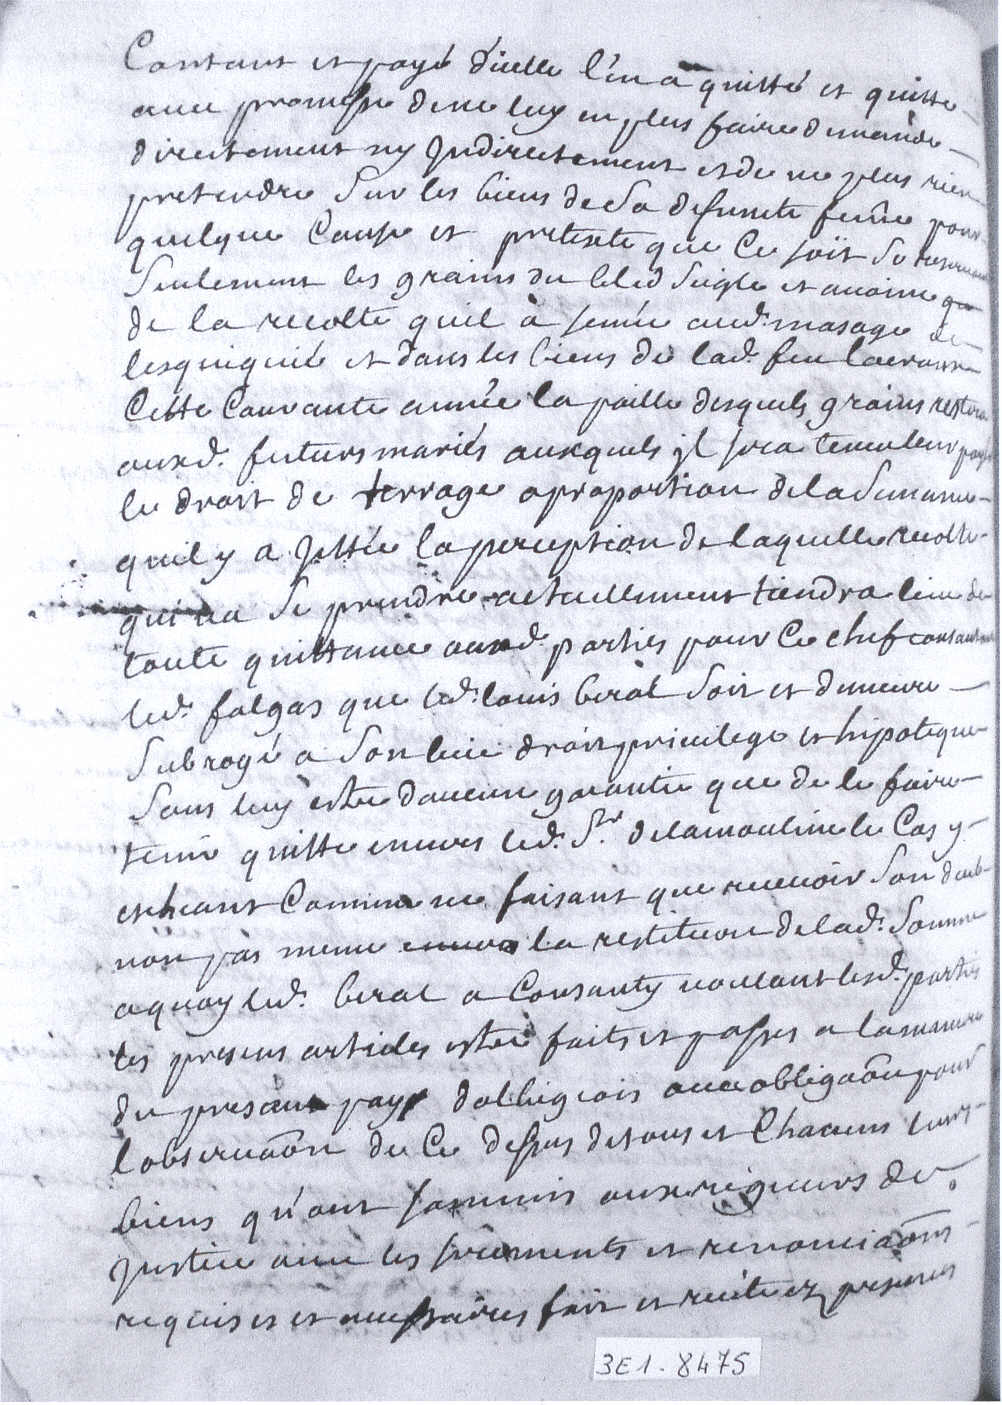 Contant et payé d'icelle l'en a quitté et quitte
avec promesse de ne luy en plus faire demande
directement ny Indirectement et de ne plus rien
pretendre sur les biens de sa defunte feme pour
quelque cause et pretexte que ce soit se reservant
seulement les grains du bled seigle et avoine
de la recolte quil à semée aud. masage de
et dans les biens de lad. feu
cette courante année la paille desquels grains restera
auxd. futurs mariés auxquels jl sera tenu leur payer
le droit de terrage a proportion de la semance
quil y a Jettée la perception de laquelle recolte
qui va se prendre actuellement tiendra lieu de
toute quittance auxd. parties pour ce chef consantant
led. falgas que led. louis beral soit et demeure
subrogé a son lieu droit privilege et hipoteque
sans luy estre daucune garantie que de le faire
tenir quitte envers led. Sr. delamouline le cas y
echeant comme ne faisant que recevoir son deub
non pas meme la restitution de lad. somme
a quoy led. beral a consanty voulant lesd. parties
les presens articles estre faits et passes a la maniere
du presant pays dalbigeois avec obligaôn pour
lobservaôn de ce dessus de tous et chacuns leurs
biens qu'ont soumis aux rigueurs de
justice avec les serements et renonciaôns
requises et necessaires fait et recité ez presences
3E1. 8475